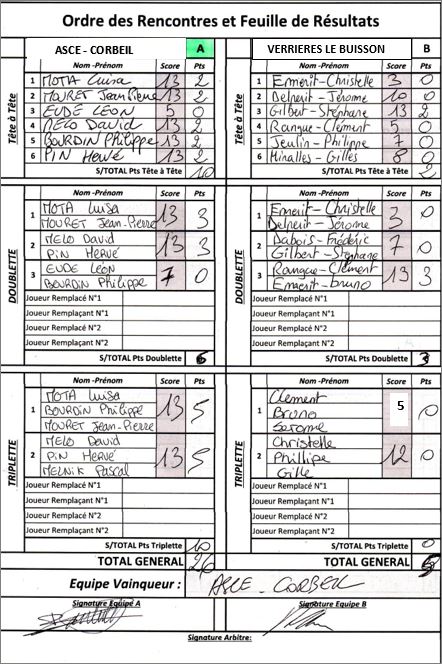 Ordre des Rencontres et Feuille de Résultats
ASCE - CORBEIL A VERRIERES LE BUISSON B
Tête à Tête
Nom -Prénom Score Pts Nom -Prénom Score Pts
1 MOTA Luisa 13 2 1 Emerit - Christelle 3 0
2 MOURET Jean Pierre 13 2 2 Delperit - Jérome 10 0
3 EUDE LÉON 5 0 3 Gilbert - Stéphane 13 2
4 MELO DAVID 13 2 4 Rangue - Clément 5 0
5 BOURDIN Philippe 13 2 5 Jeulin - Philippe 7 0
6 PIN HERVÉ 13 2 6 Miralles - Gilles 8 0
S/TOTAL Pts Tête à Tête 10 S/TOTAL Pts Tête à Tête 2
DOUBLETTE
Nom -Prénom Score Pts Nom -Prénom Score Pts
1 MOTA Luisa 13 3 1 Emerit - Christelle 3 0
MOURET Jean-Pierre Delperit - Jérome
2 MELO David 13 3 2 Dabois - Frédéric 7 0
PIN HERVÉ Gilbert - Stéphane
3 EUDE LÉON 7 0 3 Rangue - Clément 13 3
BOURDIN Philippe Emerit - bruno
Joueur Remplacé N°1 Joueur Remplacé N°1
Joueur Remplaçant N°1 Joueur Remplaçant N°1
Joueur Remplacé N°2 Joueur Remplacé N°2
Joueur Remplaçant N°2 Joueur Remplaçant N°2
S/TOTAL Pts Doublette 6 S/TOTAL Pts Doublette 3
TRIPLETTE
Nom -Prénom Score Pts Nom -Prénom Score Pts
1 MOTA Luisa 13 5 1 Clément 5 0
BOURDIN Philippe Bruno
MOURET Jean-Pierre Jerome
2 MELO David 13 5 2 Christelle 12 0
PIN HERVÉ Phillipe
MELNIK Pascal Gille
Joueur Remplacé N°1 Joueur Remplacé N°1
Joueur Remplaçant N°1 Joueur Remplaçant N°1
Joueur Remplacé N°2 Joueur Remplacé N°2
Joueur Remplaçant N°2 Joueur Remplaçant N°2
S/TOTAL Pts Triplette 10 S/TOTAL Pts Triplette 0
TOTAL GENERAL 26 TOTAL GENERAL 5
Equipe Vainqueur : ASCE - CORBEIL
Signature Equipe A Signature Equipe B
Signature Arbitre: